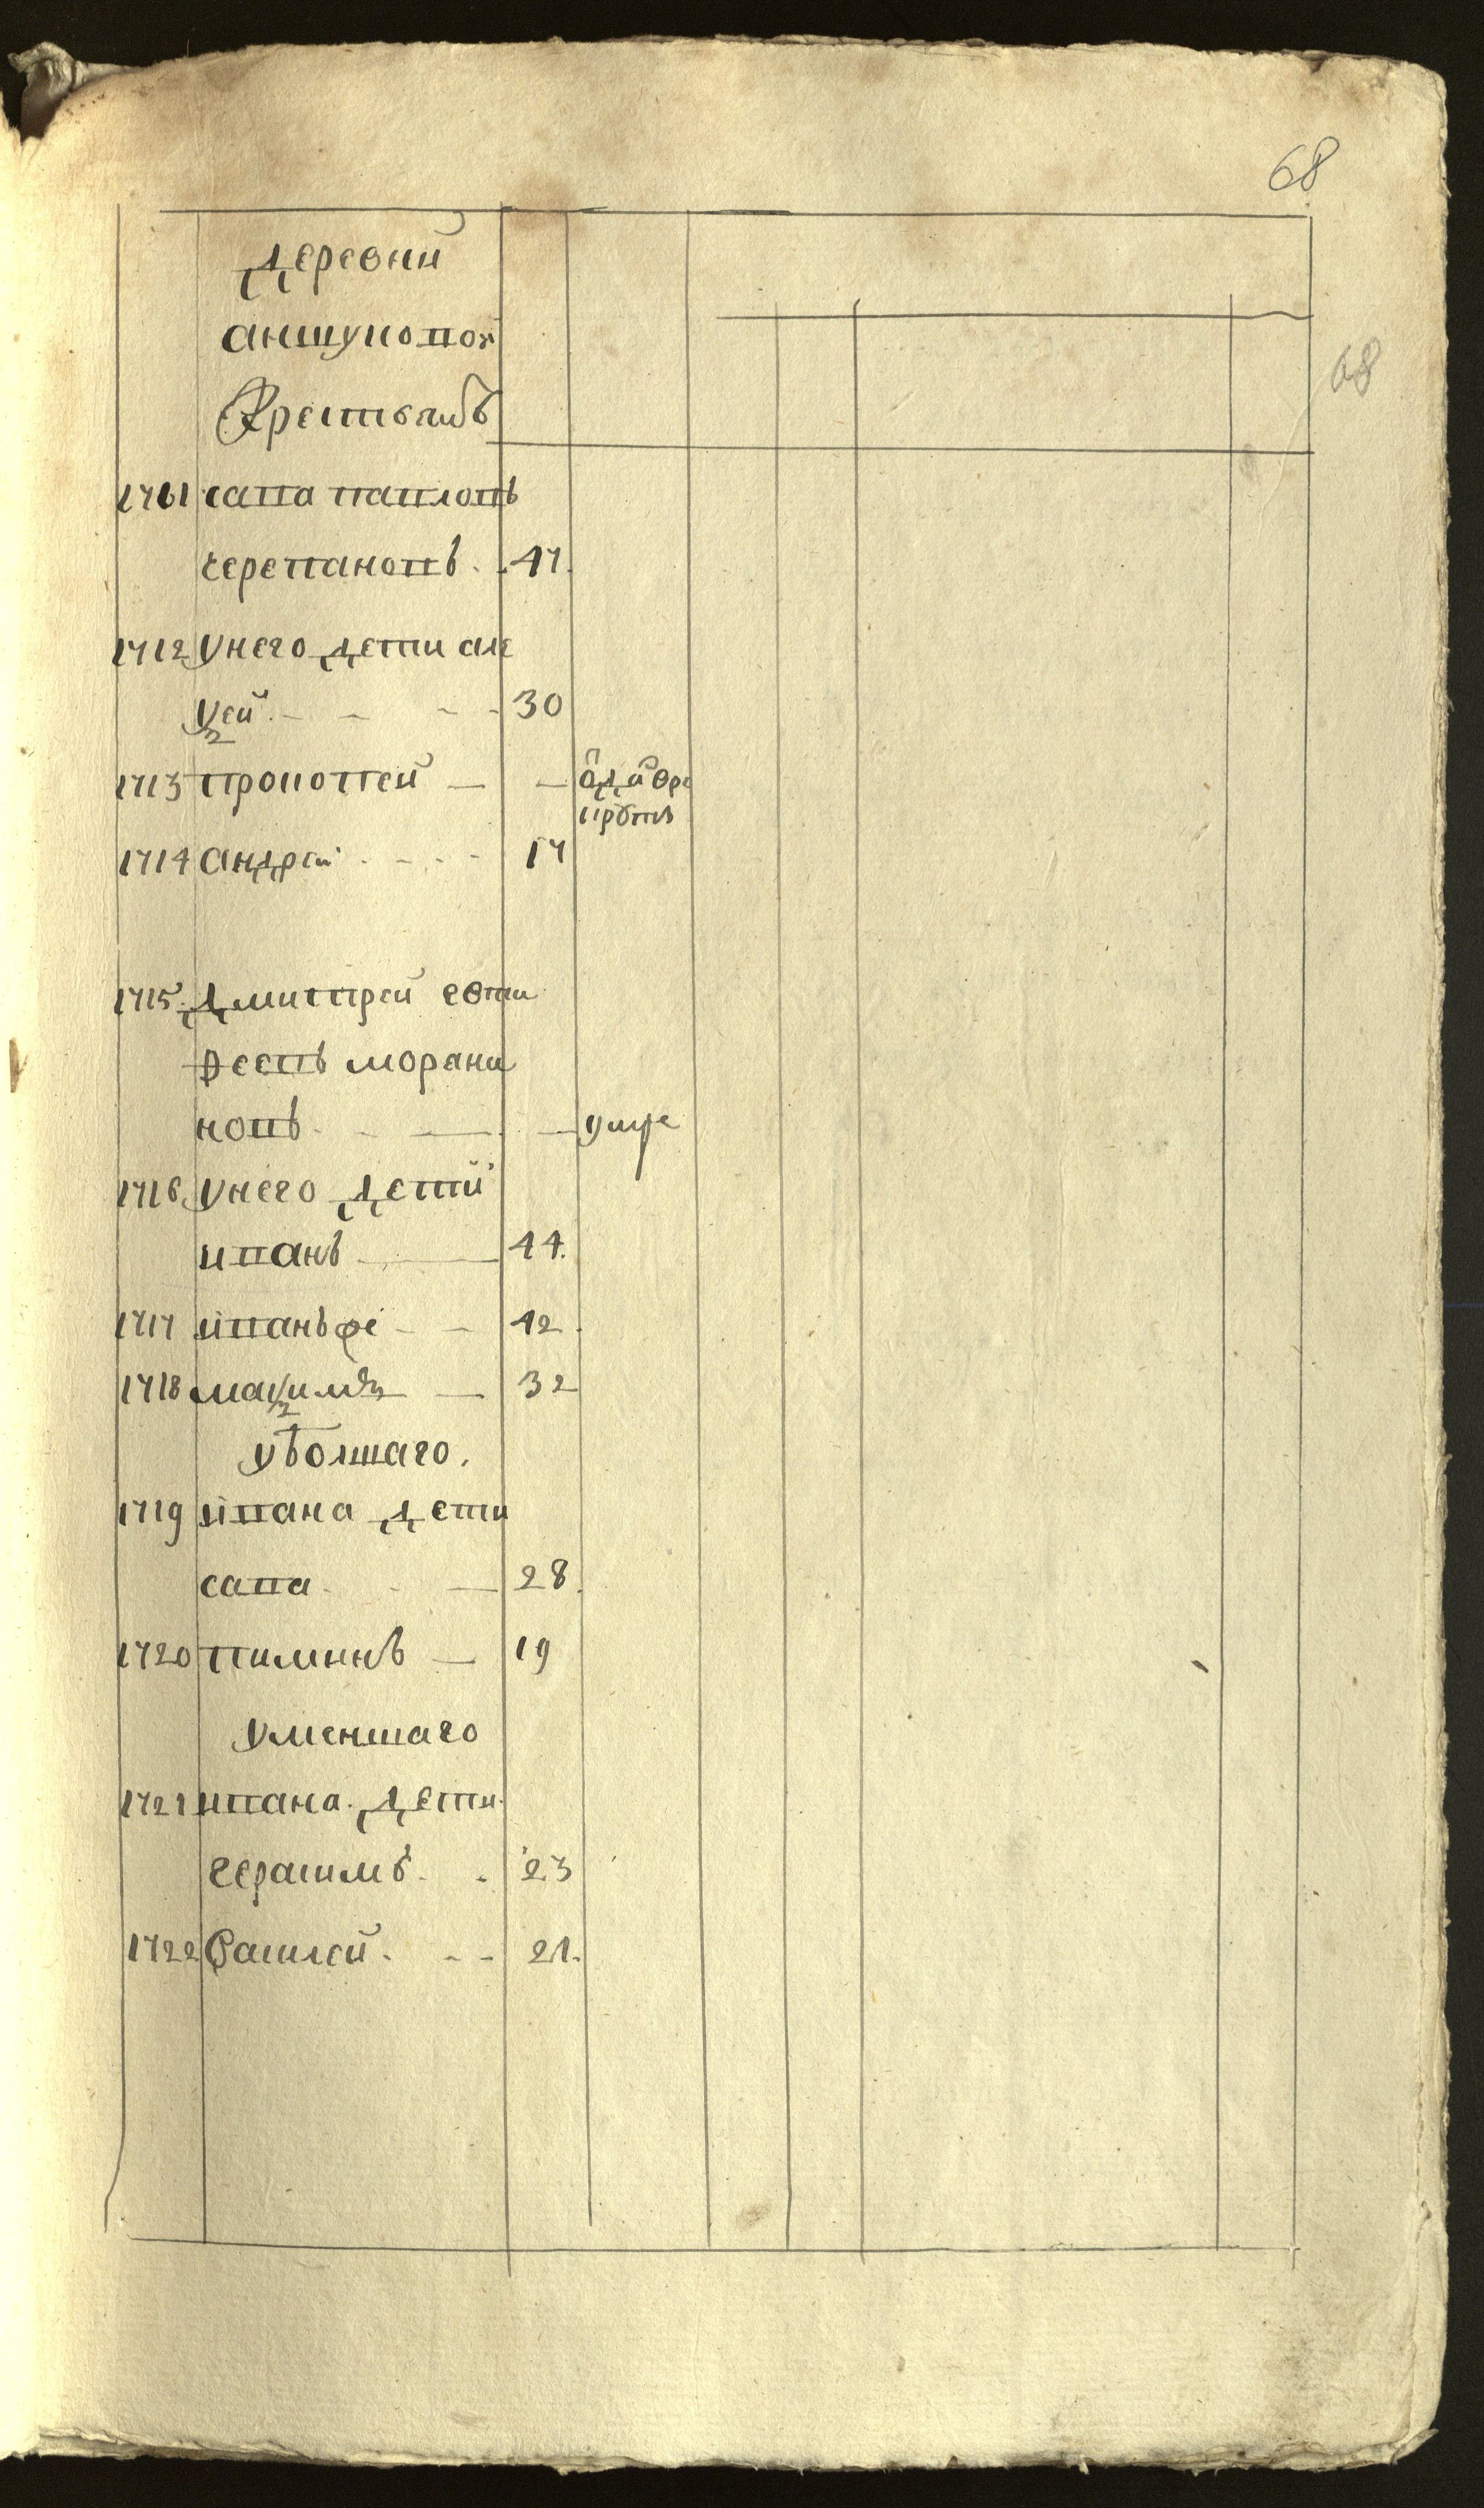 68
деревни
аншуковой
Крестьянъ
68
1711 сава павловъ
черепановъ 47
1712 унего дети але
ѯей 30
1713 прокопей
рекруты
1714 андрей 17
1715 дмитрей евти
феевъ морани
новъ умре
1716 унего дети
иванъ 44
1717 иванъ же 42
1718 маѯимъ 32
уболшаго
1719 ивана дети
сава 28
1720 пиминъ 19
уменшаго
1721 ивана дети
герасимъ 23
1722 Василей 21